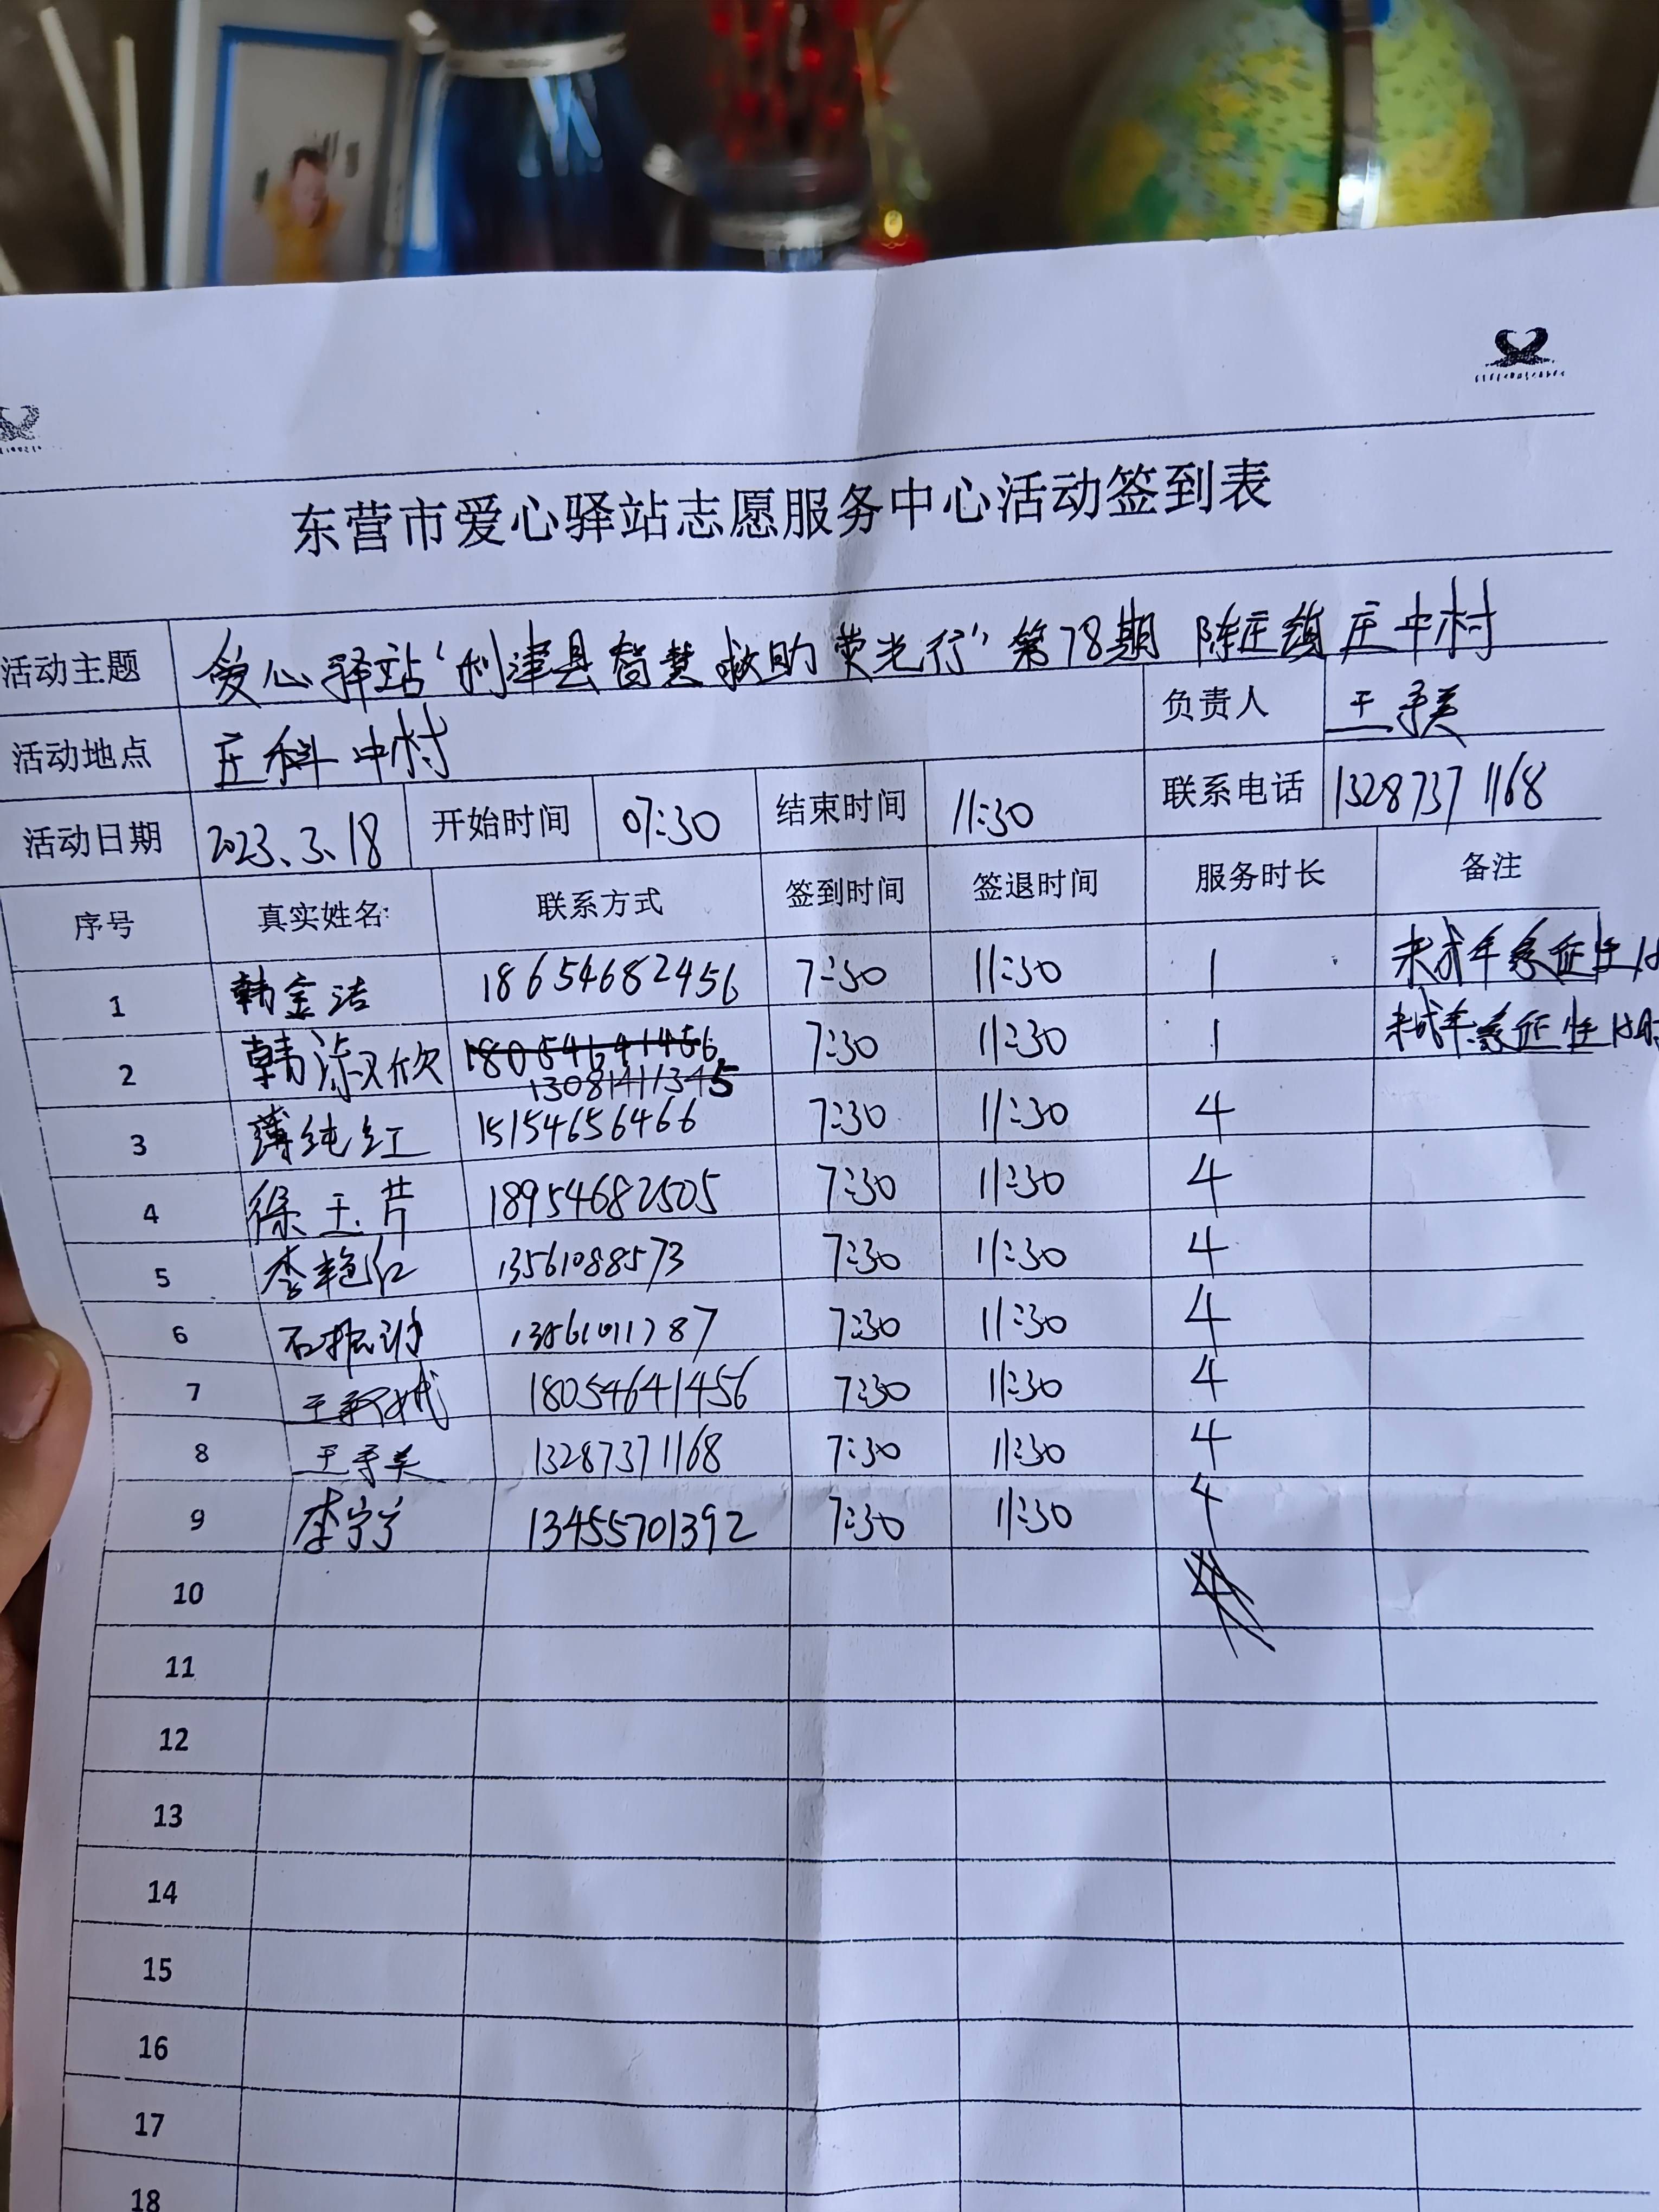 东营市爱心驿站志愿服务中心活动签到表
活动主题 爱心驿站“利津县智慧救助荧光行”第78期 陈庄镇庄中村
活动地点 庄科中村 负责人 王
活动日期 2023.3.18 开始时间 07:30 结束时间 11:30 联系电话 13287371168
序号 真实姓名: 联系方式 签到时间 签退时间 服务时长 备注
1 韩金洁 18654682456 7:30 11:30 1 未成年
2 韩淑欣 18054641456 7:30 11:30 1 未成年
13081411345
3 薄纯红 15154656466 7:30 11:30 4
4 徐玉芹 18954682505 7:30 11:30 4
5 李艳红 13561088573 7:30 11:30 4
6 石振 7:30 11:30 4
7 王 18054641456 7:30 11:30 4
8 王 13287371168 7:30 11:30 4
9 李宁宁 13455701392 7:30 11:30 4
10
11
12
13
14
15
16
17
18